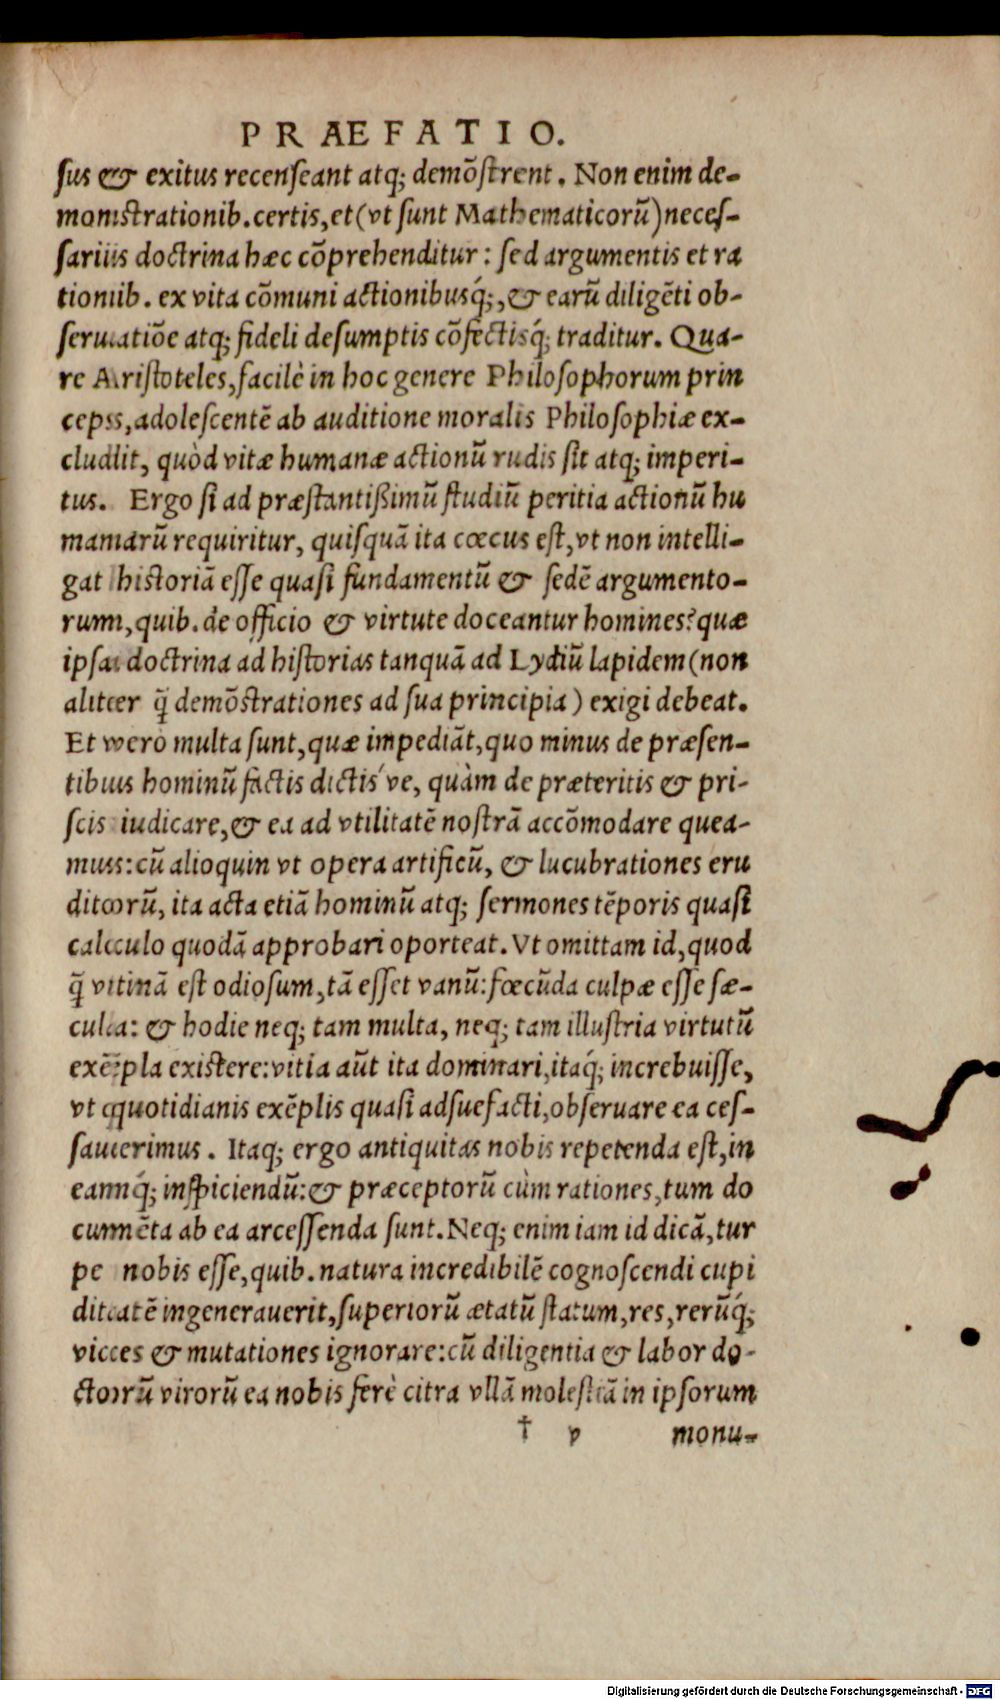 PRAEFATIO.
sus & exitus recenseant atq; demõstrent. Non enim de-
monstrationib. certis, et (vt sunt Mathematicorũ) neces-
sariis doctrina hæc cõprehenditur: sed argumentis et ra
tionib. ex vita cõmuni actionibusq́;, & earũ diligẽti ob-
seruatiõe atq; fideli desumptis cõfectisq́; traditur. Qua-
re Aristoteles, facilè in hoc genere Philosophorum prin
ceps, adolescentẽ ab auditione moralis Philosophiæ ex-
cludit, quòd vitæ humanæ actionũ rudis sit atq; imperi-
tus. Ergo si ad præstantißimũ studiũ peritia actionũ hu
manarũ requiritur, quisquã ita cœcus est, vt non intelli-
gat historiã esse quasi fundamentũ & sedẽ argumento-
rum, quib. de officio & virtute doceantur homines? quæ
ipsa doctrina ad historias tanquã ad Lydiũ lapidem (non
aliter q̃ demõstrationes ad sua principia) exigi debeat.
Et vero multa sunt, quæ impediãt, quo minus de præsen-
tibus hominũ factis dictis've, quàm de præteritis & pri-
scis iudicare, & ea ad vtilitatẽ nostrã accõmodare quea-
mus: cũ alioquin vt opera artificũ, & lucubrationes eru
ditorũ, ita acta etiã hominũ atq; sermones tẽporis quasi
calculo quodã approbari oporteat. Vt omittam id, quod
q̃ vtinã est odiosum, tã esset vanũ: fœcũda culpæ esse sæ-
cula: & hodie neq; tam multa, neq; tam illustria virtutũ
exẽpla existere: vitia aũt ita dominari, itaq́; increbuisse,
vt quotidianis exẽplis quasi adsuefacti, obseruare ea ces-
sauerimus. Itaq; ergo antiquitas nobis repetenda est, in
eamq́; inspiciendũ: & præceptorũ cùm rationes, tum do
cumẽta ab ea arcessenda sunt. Neq; enim iam id dicã, tur
pe nobis esse, quib. natura incredibilẽ cognoscendi cupi
ditatẽ ingenerauerit, superiorũ ætatũ statum, res, rerũq́;
vices & mutationes ignorare: cũ diligentia & labor do-
ctorũ virorũ ea nobis ferè citra vllã molestiã in ipsorum
† v monu-
Digitalisierung gefördert durch die Deutsche Forschungsgemeinschaft - DFG